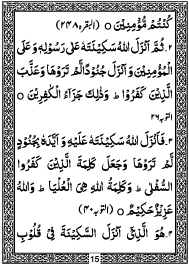 كُنْتُمْ مُّؤْمِنِيْنَ ○ (البقره ۲۴۸)
۲۔ ثُمَّ اَنْزَلَ اللهُ سَكِيْنَتَهٗ عَلٰى رَسُوْلِهٖ وَعَلَى
الْمُؤْمِنِيْنَ وَاَنْزَلَ جُنُوْدًا لَّمْ تَرَوْهَا وَعَذَّبَ
الَّذِيْنَ كَفَرُوْا ط وَذٰلِكَ جَزَآءُ الْكٰفِرِيْنَ ○
التوبه ۲۶
۳۔ فَاَنْزَلَ اللهُ سَكِيْنَتَهٗ عَلَيْهِ وَاَيَّدَهٗ بِجُنُوْدٍ
لَّمْ تَرَوْهَا وَجَعَلَ كَلِمَةَ الَّذِيْنَ كَفَرُوا
السُّفْلٰى ط وَكَلِمَةُ اللهِ هِيَ الْعُلْيَا ط وَاللهُ
عَزِيْزٌ حَكِيْمٌ ○ (التوبه ۴۰)
۴۔ هُوَ الَّذِيْٓ اَنْزَلَ السَّكِيْنَةَ فِيْ قُلُوْبِ
15